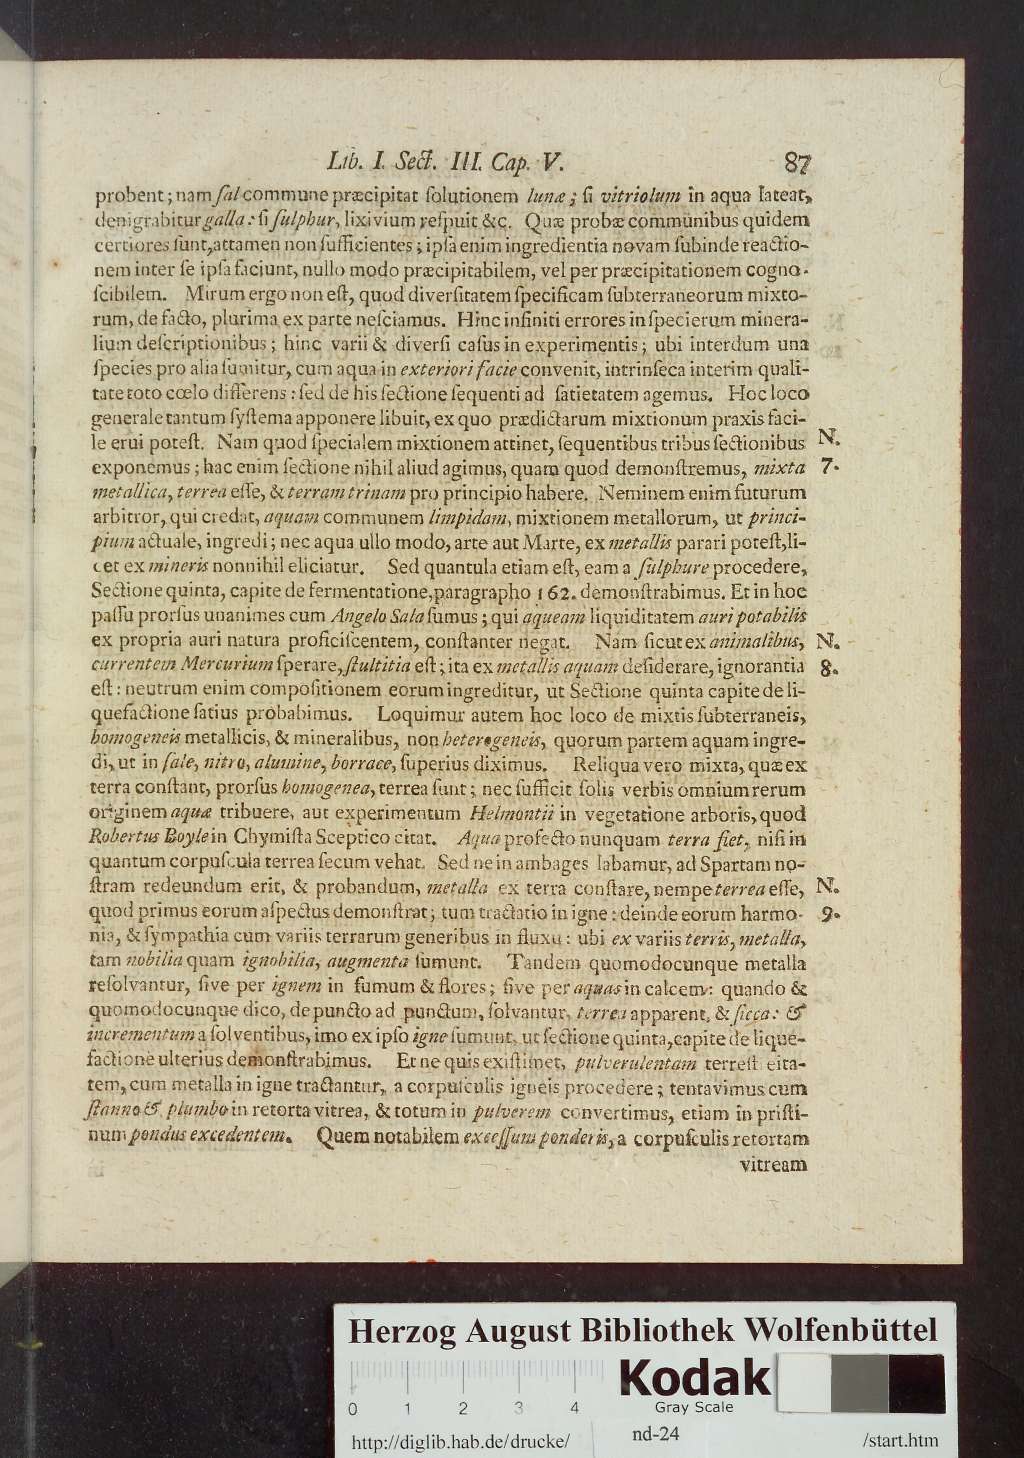 Lib. I. Sect. III. Cap. V. 87
probent; nam ſal commune præcipitat ſolutionem lunæ; ſi vitriolum in aqua lateat,
denigrabitur galla: ſi ſulphur, lixivium reſpuit &c. Quæ probæ communibus quidem
certiores ſunt, attamen non ſufficientes; ipſa enim ingredientia novam ſubinde reactio-
nem inter ſe ipſa faciunt, nullo modo præcipitabilem, vel per præcipitationem cogno-
ſcibilem. Mirum ergo non eſt, quod diverſitatem ſpecificam ſubterraneorum mixto-
rum, de facto, plurima ex parte neſciamus. Hinc infiniti errores in ſpecierum minera-
lium deſcriptionibus; hinc varii & diverſi caſus in experimentis; ubi interdum una
ſpecies pro alia ſumitur, cum aqua in exteriori facie convenit, intrinſeca interim quali-
tate toto cœlo differens: ſed de his ſectione ſequenti ad ſatietatem agemus. Hoc loco
generale tantum ſyſtema apponere libuit, ex quo prædictarum mixtionum praxis faci-
le erui poteſt. Nam quod ſpecialem mixtionem attinet, ſequentibus tribus ſectionibus N.
exponemus; hac enim ſectione nihil aliud agimus, quam quod demonſtremus, mixta 7.
metallica, terrea eſſe, & terram trinam pro principio habere. Neminem enim futurum
arbitror, qui credat, aquam communem limpidam, mixtionem metallorum, ut princi-
pium actuale, ingredi; nec aqua ullo modo, arte aut Marte, ex metallis parari poteſt, li-
cet ex mineris nonnihil eliciatur. Sed quantula etiam eſt, eam a ſulphure procedere,
Sectione quinta, capite de fermentatione, paragrapho 162. demonſtrabimus. Et in hoc
paſſu prorſus unanimes cum Angelo Sala ſumus; qui aqueam liquiditatem auri potabilis
ex propria auri natura proficiſcentem, conſtanter negat. Nam ſicut ex animalibus, N.
currentem Mercurium ſperare, ſtultitia eſt; ita ex metallis aquam deſiderare, ignorantia 8.
eſt: neutrum enim compoſitionem eorum ingreditur, ut Sectione quinta capite de li-
quefactione ſatius probabimus. Loquimur autem hoc loco de mixtis ſubterraneis,
homogeneis metallicis, & mineralibus, non heterogeneis, quorum partem aquam ingre-
di, ut in ſale, nitro, alumine, borrace, ſuperius diximus. Reliqua vero mixta, quæ ex
terra conſtant, prorſus homogenea, terrea ſunt; nec ſufficit ſolis verbis omnium rerum
originem aquæ tribuere, aut experimentum Helmontii in vegetatione arboris, quod
Robertus Boyle in Chymiſta Sceptico citat. Aqua profecto nunquam terra fiet, niſi in
quantum corpuſcula terrea ſecum vehat. Sed ne in ambages labamur, ad Spartam no-
ſtram redeundum erit, & probandum, metalla ex terra conſtare, nempe terrea eſſe, N.
quod primus eorum aſpectus demonſtrat; tum tractatio in igne: deinde eorum harmo- 9.
nia, & ſympathia cum variis terrarum generibus in fluxu: ubi ex variis terris, metalla,
tam nobilia quam ignobilia, augmenta ſumunt. Tandem quomodocunque metalla
reſolvantur, ſive per ignem in fumum & flores; ſive per aquas in calcem: quando &
quomodocunque dico, de puncto ad punctum, ſolvantur, terrea apparent, & ſicca: &
incrementum a ſolventibus, imo ex ipſo igne ſumunt, ut ſectione quinta, capite de lique-
factione ulterius demonſtrabimus. Et ne quis exiſtimet, pulverulentam terreſt eita-
tem, cum metalla in igne tractantur, a corpuſculis igneis procedere; tentavimus cum
ſtanno & plumbo in retorta vitrea, & totum in pulverem convertimus, etiam in priſti-
num pondus excedentem. Quem notabilem exceſſum ponderis, a corpuſculis retortam
vitream
Herzog August Bibliothek Wolfenbüttel
Kodak
Gray Scale
0 1 2 3 4
http://diglib.hab.de/drucke/ nd-24 /start.htm